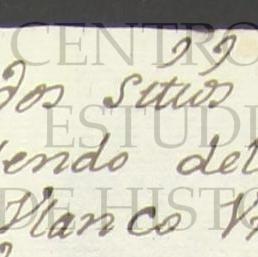 CENTRO
dos sitios
ESTUDI
endo del
DE HISTO
Blanco